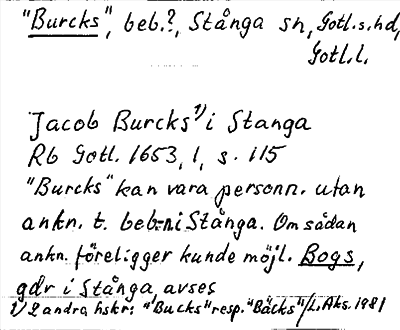 "Burcks", beb.?, Stånga sn, Gotl.s.hd,
Gotl.l.
Jacob Burcks¹⁾ i Stanga
Rb Gotl. 1653, 1, s. 115
"Burcks" kan vara personn. utan
ankn. t. beb-n i Stånga. Om sådan
ankn. föreligger kunde möjl. Bogs,
gdr i Stånga, avses
1) 2 andra hskr: "Bucks" resp. "Bäcks" / L. Aks. 1981